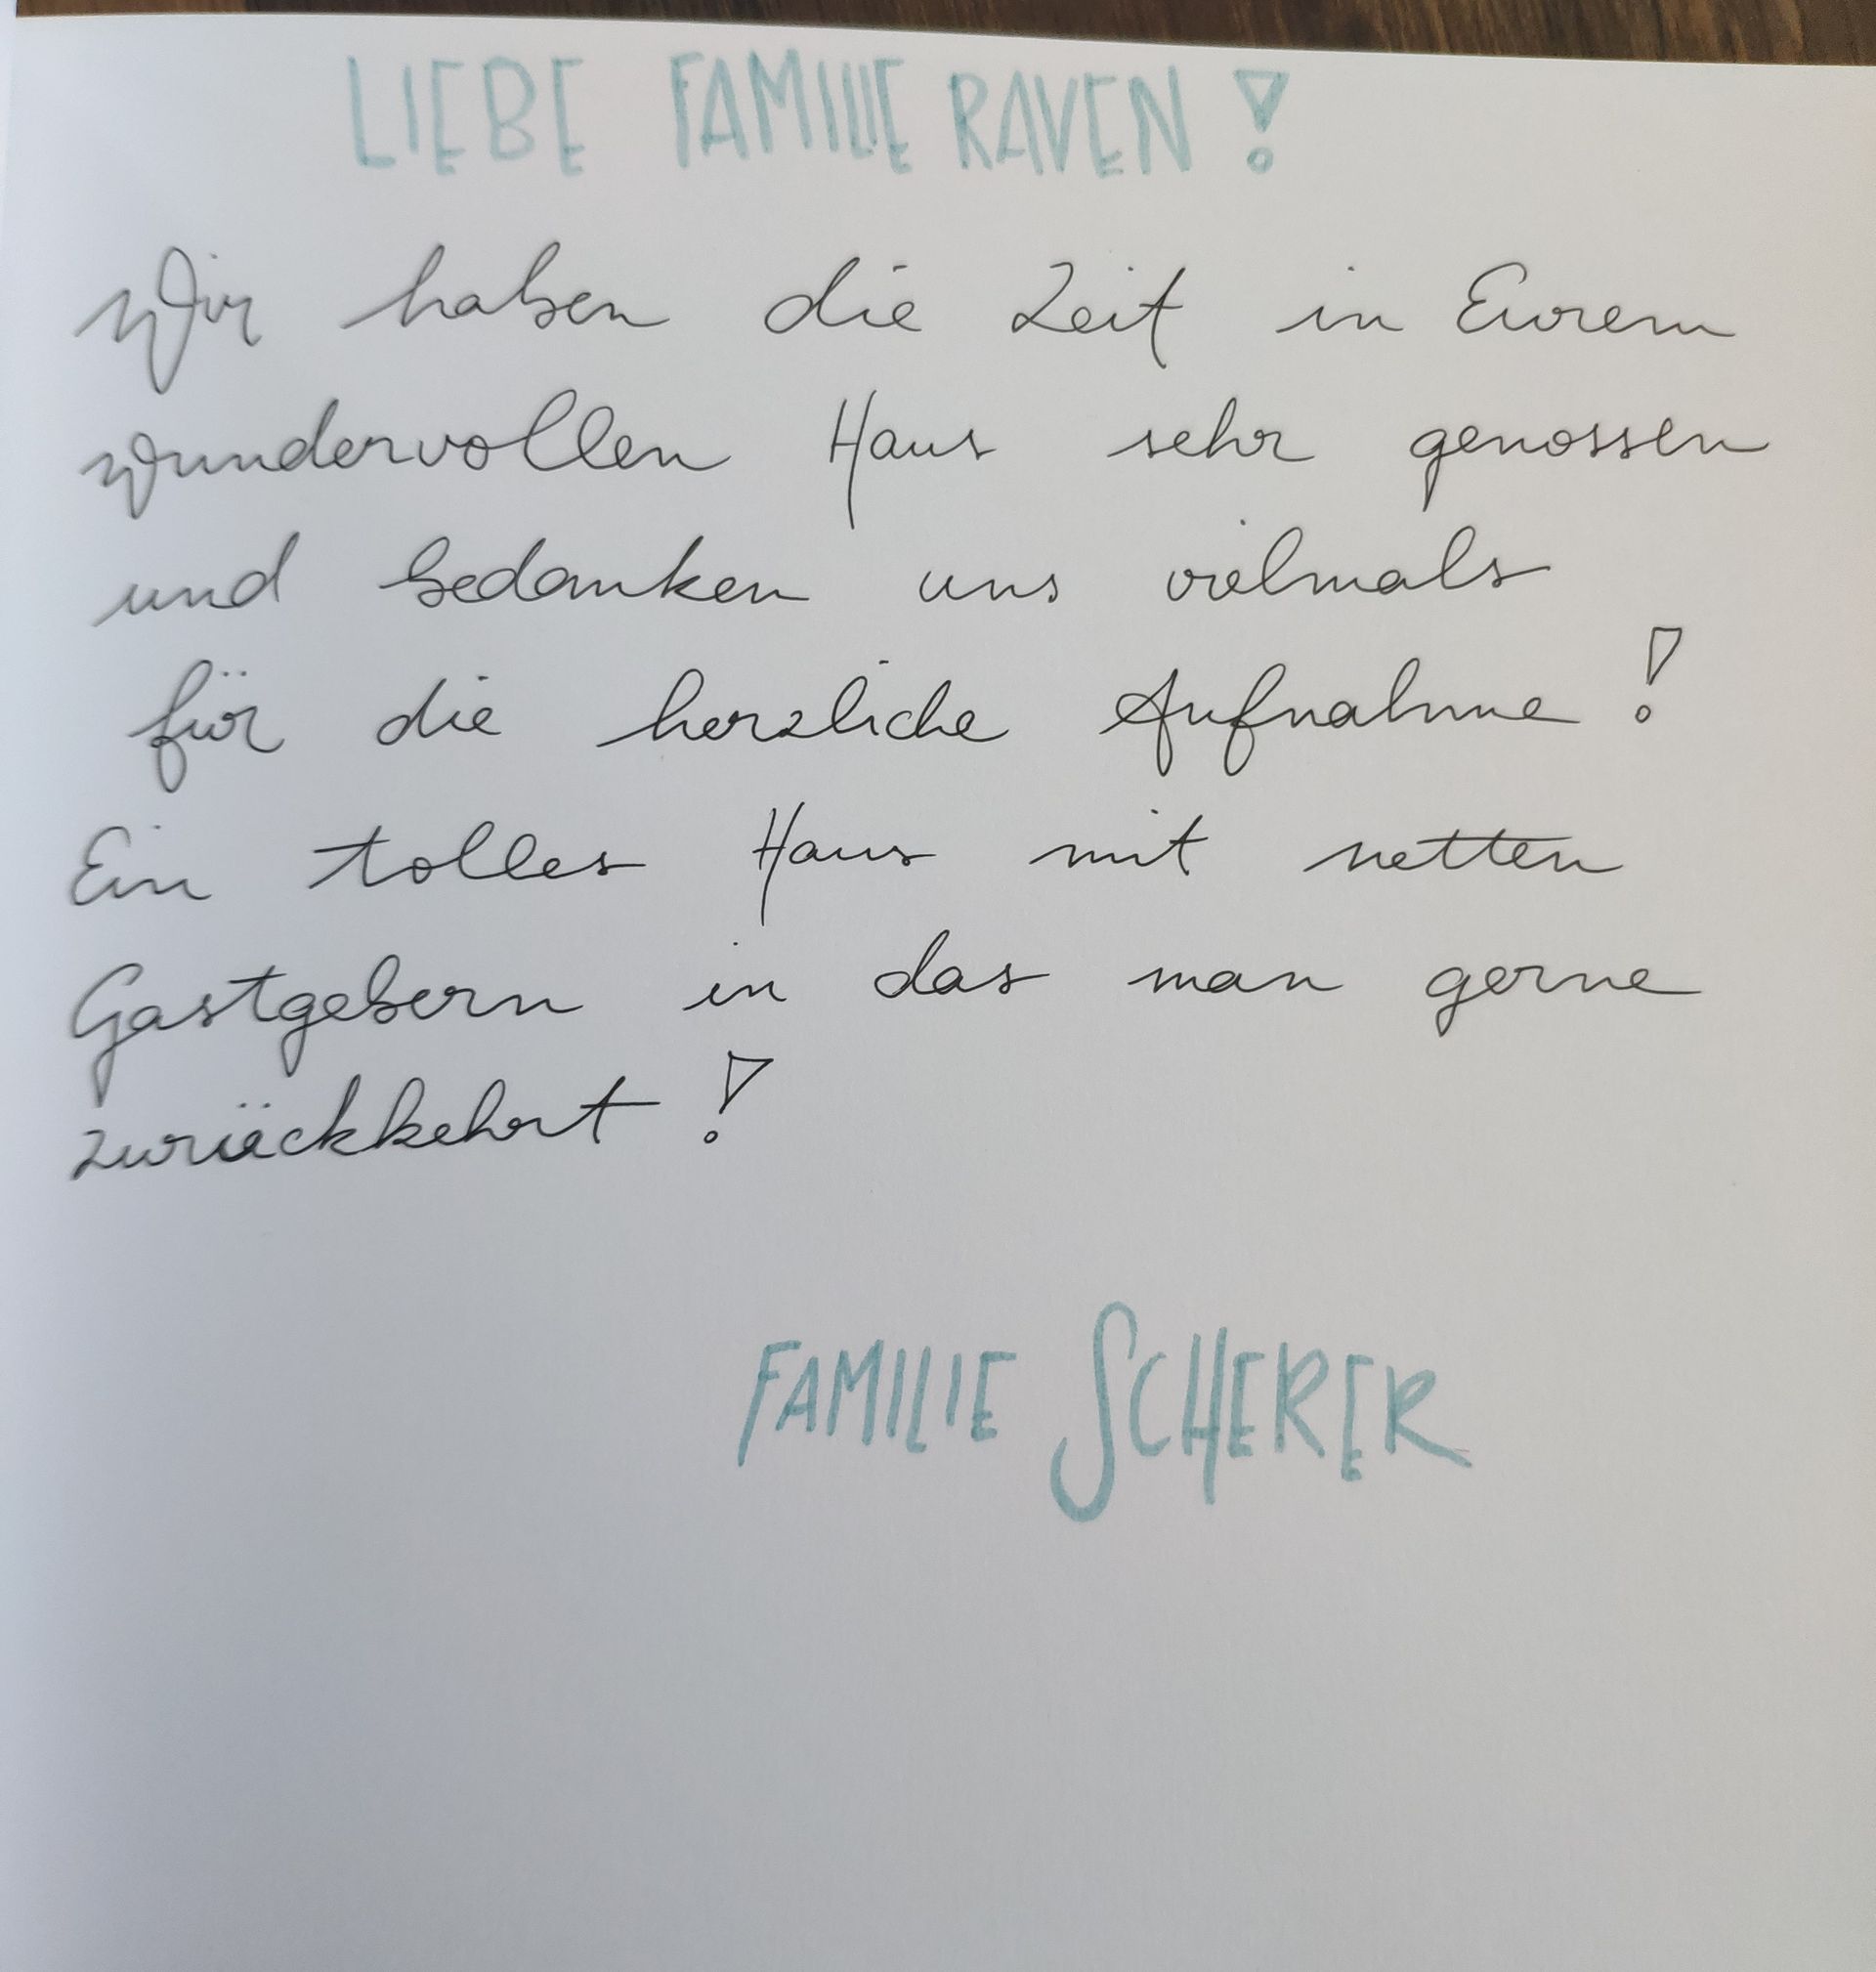 LIEBE FAMILIE RAVEN!
Wir haben die Zeit in Eurem
wundervollen Haus sehr genossen
und bedanken uns vielmals
für die herzliche Aufnahme!
Ein tolles Haus mit netten
Gastgebern in das man gerne
zurückkehrt!
FAMILIE SCHERER